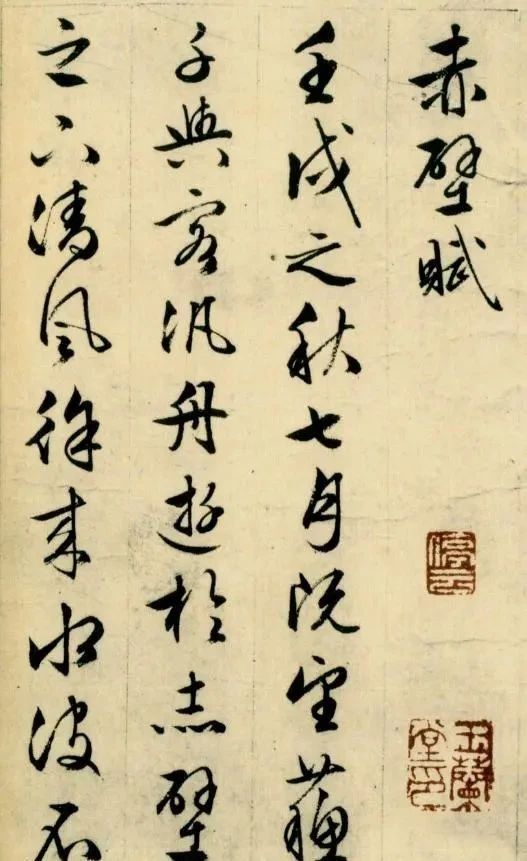 赤壁賦
停雲
玉蘭堂印
壬戌之秋七月既望蘓
子與客汎舟遊於赤壁
之下清風徐來水波不